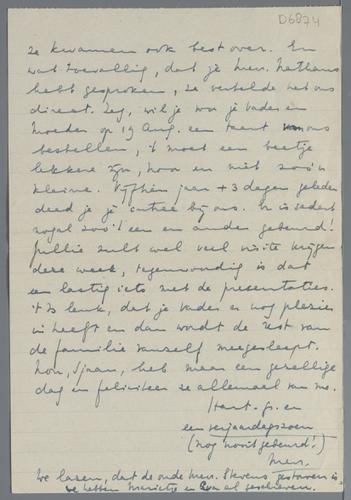 D6874
ze kwamen ook best over. En
wat toevallig, dat je Mevr. Nathans
hebt gesproken, ze vertelde het ons
direct. Zeg, wil je voor je vader en
moeder op 19 Aug. een taart v. ons
bestellen, 't moet een beetje
lekkere zijn, hoor en niet zoo'n
kleine. Vijftien jaar + 3 dagen geleden
deed je je entrée bij ons. Er is sedert
nogal zoo't een en ander gebeurd!
Jullie zult wel veel visite krijgen
deze week, tegenwoordig is dat
een lastig iets met de presentaties.
't Is leuk, dat je vader er nog plezier
in heeft en dan wordt de rest van
de familie vanzelf meegesleept.
Nou, Sjaan, heb maar een gezellige
dag en feliciteer ze allemaal van me.
Hart. gr. en
een verjaardagszoen
(nog nooit gebeurd!)
We lazen, dat de oude Mevr. Stevens gestorven is
we hebben Marietje en al geschreven.